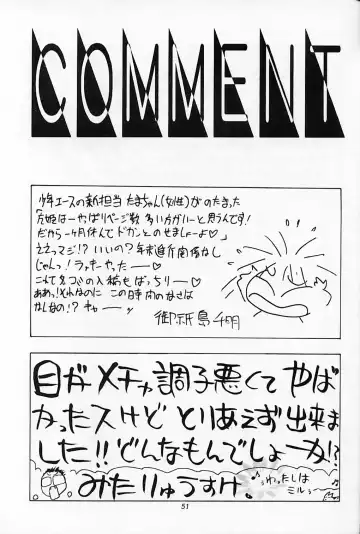 COMMENT
少年エースの新担当 たまちゃん(女性)がのたまった
「灰姫はーやっぱりページ数 多い方がいーと思うんです!
だから一ヶ月休んでドカンとのせましょーよ♡」
ええっマジ!? いいの? 年末進行関係なし
じゃんっ! ラッキーやったー♡
これで冬コミの入稿もばっちりー♡
ああっ!それなのに この時間のなさは
なんなの!? キャー
御祇島千明
目がメチャ調子悪くて やば
かったスけど とりあえず出来ま
した!! どんなもんでしょーか!?
みたりゅうすけ。
♪わったしは
ミルっ
51